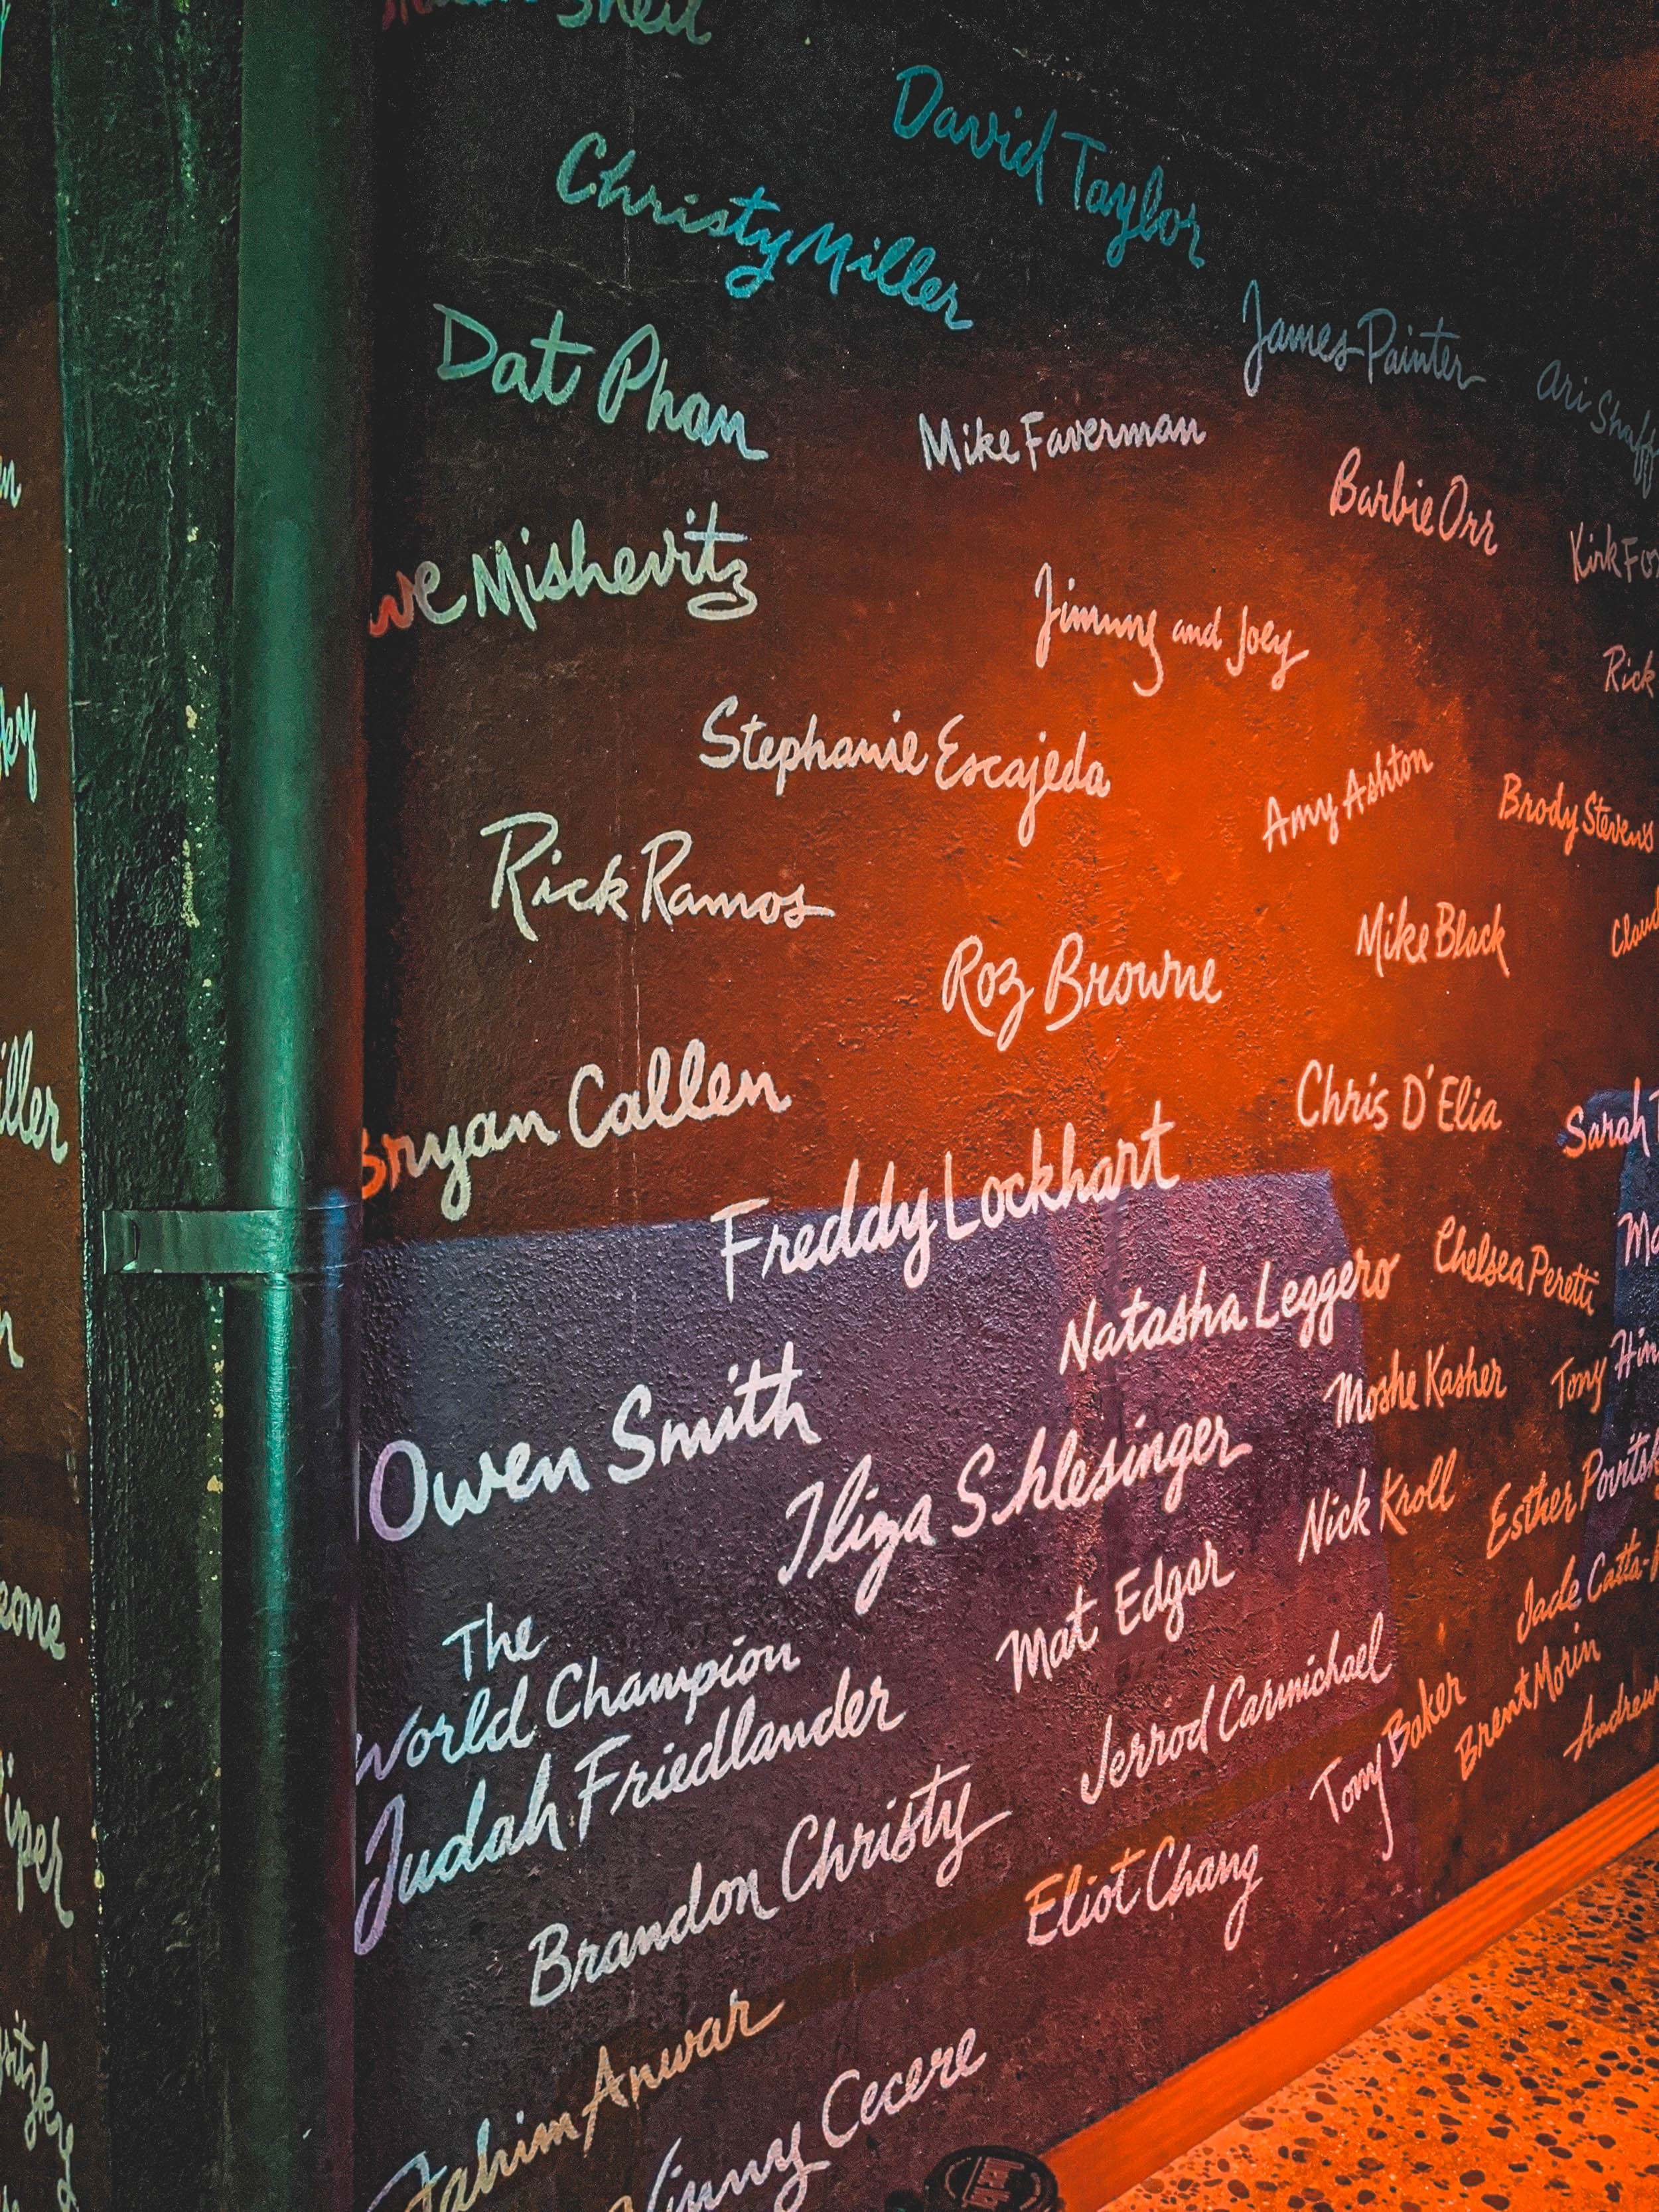 David Taylor
Christy Miller
Dat Phan
James Painter
Ari
Mike Faverman
Barbie Orr
Kirk
Mishevitz
Jimmy and Joey
Rick
Stephanie Escajeda
Amy Ashton
Brody Stevens
Rick Ramos
Mike Black
Roz Browne
Bryan Callen
Chris D'Elia
Sarah
Freddy Lockhart
Chelsea Peretti
Natasha Leggero
Moshe Kasher
Tony
Owen Smith
Iliza Shlesinger
Nick Kroll
Esther
The
World Champion
Judah Friedlander
Mat Edgar
Jade
Jerrod Carmichael
Tony Baker
Brent Morin
Andrew
Brandon Christy
Eliot Chang
Fahim Anwar
Vinny Cecere